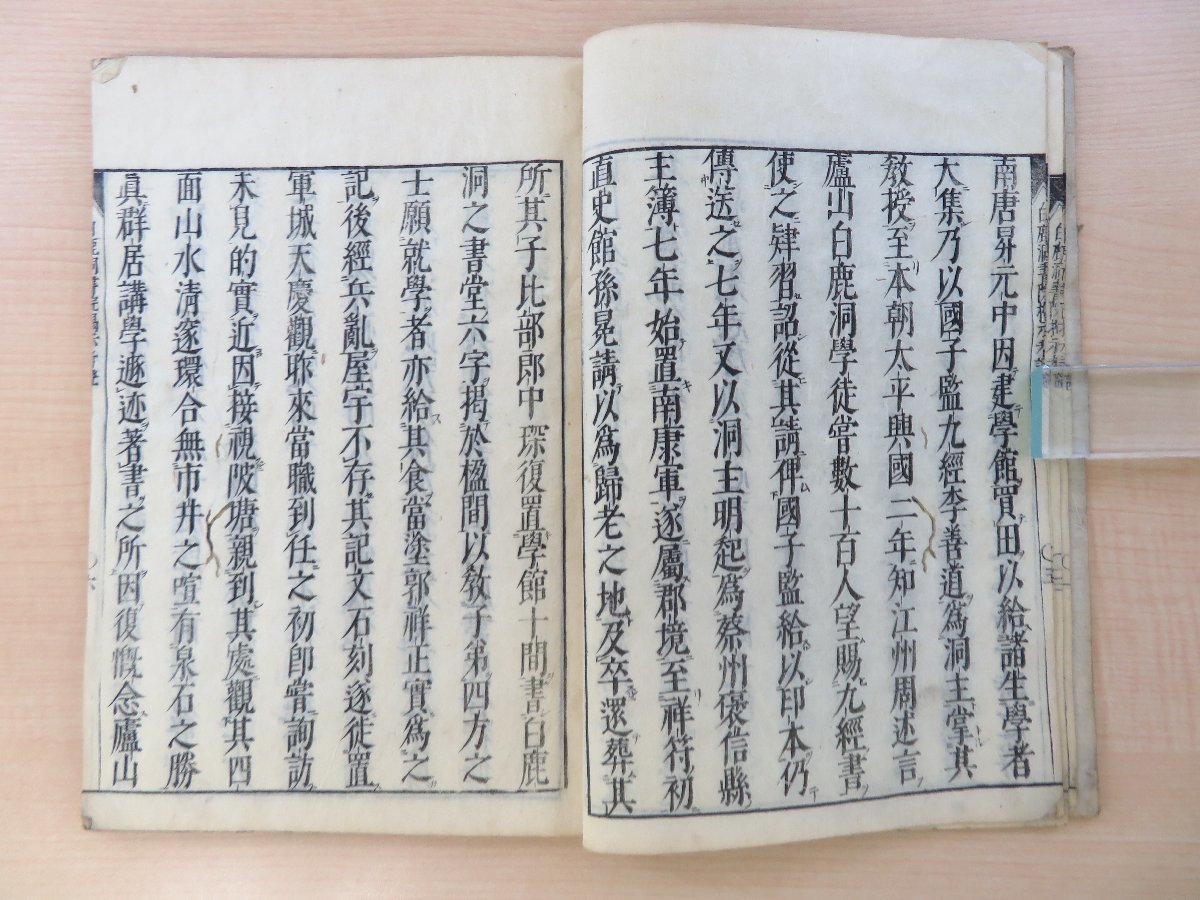 南唐昇元中因建學館買田以給諸生學者
大集乃以國子監九經李善道爲洞主掌其
敎授至本朝太平興國二年知江州周述言
廬山白鹿洞學徒甞數十百人望賜九經書
使之肄習詔從其請俾國子監給以印本仍
傳送之七年又以洞主明起爲蔡州褒信縣
主簿七年始置南康軍遂屬郡境至祥符初
直史館孫冕請以爲歸老之地及卒還葬其
所其子比部郎中琛復置學館十間書白鹿
洞之書堂六字揭於楹間以敎子弟四方之
士願就學者亦給其食當塗郭祥正實爲之
記後經兵亂屋宇不存其記文石刻遂徙置
軍城天慶觀昨來當職到任之初即甞詢訪
未見的實近因接視陂塘親到其處觀其四
面山水清邃環合無市井之喧有泉石之勝
眞群居講學遯迹著書之所因復慨念廬山